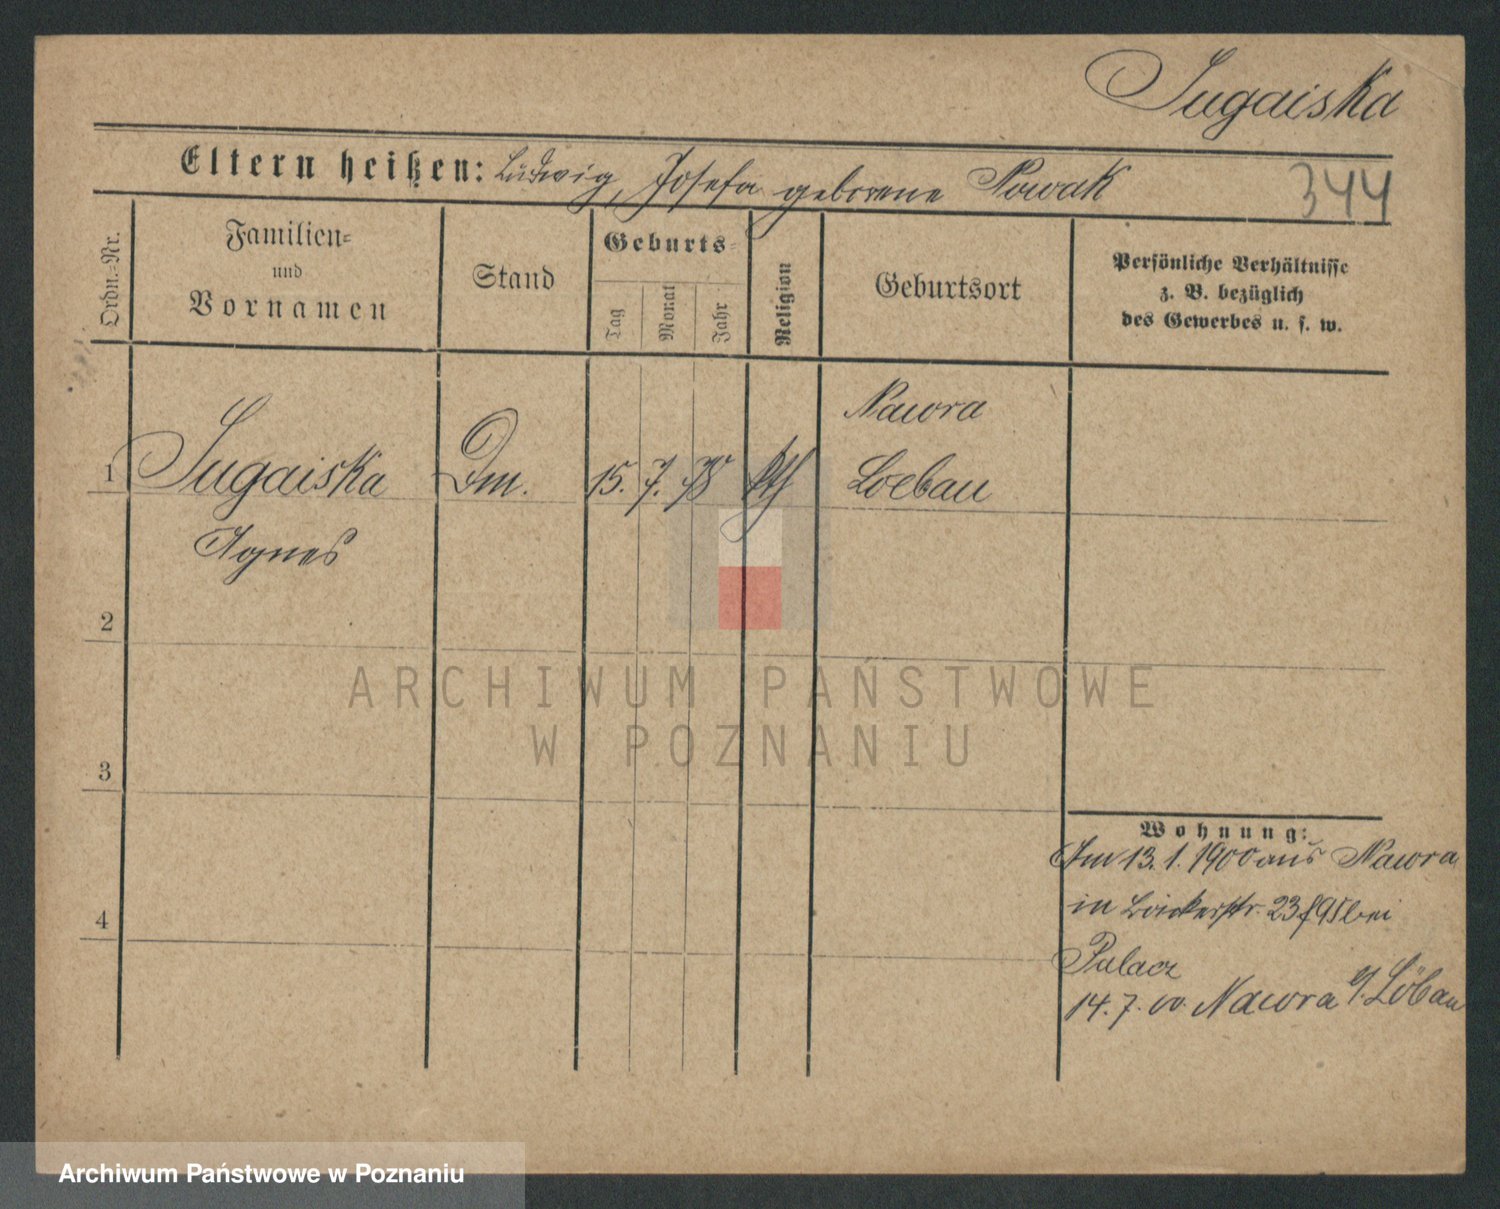 Jugaiska
Eltern heißen: Ludwig, Josefa geborene Nowak
344
Ordn.=Nr.
Familien=
und
Vornamen
Stand
Geburts=
Tag
Monat
Jahr
Religion
Geburtsort
Persönliche Verhältnisse
z. B. bezüglich
des Gewerbes u. s. w.
Nawra
1 Jugaiska Dm. 15. 7. 78 kth Loebau
Agnes
2
ARCHIWUM PAŃSTWOWE
W POZNANIU
3
Wohnung:
Am 13. 1. 1900 aus Nawra
in Bäckerstr. 23 bei
4
Palacz
14. 7. 00. Nawra Löbau
Archiwum Państwowe w Poznaniu